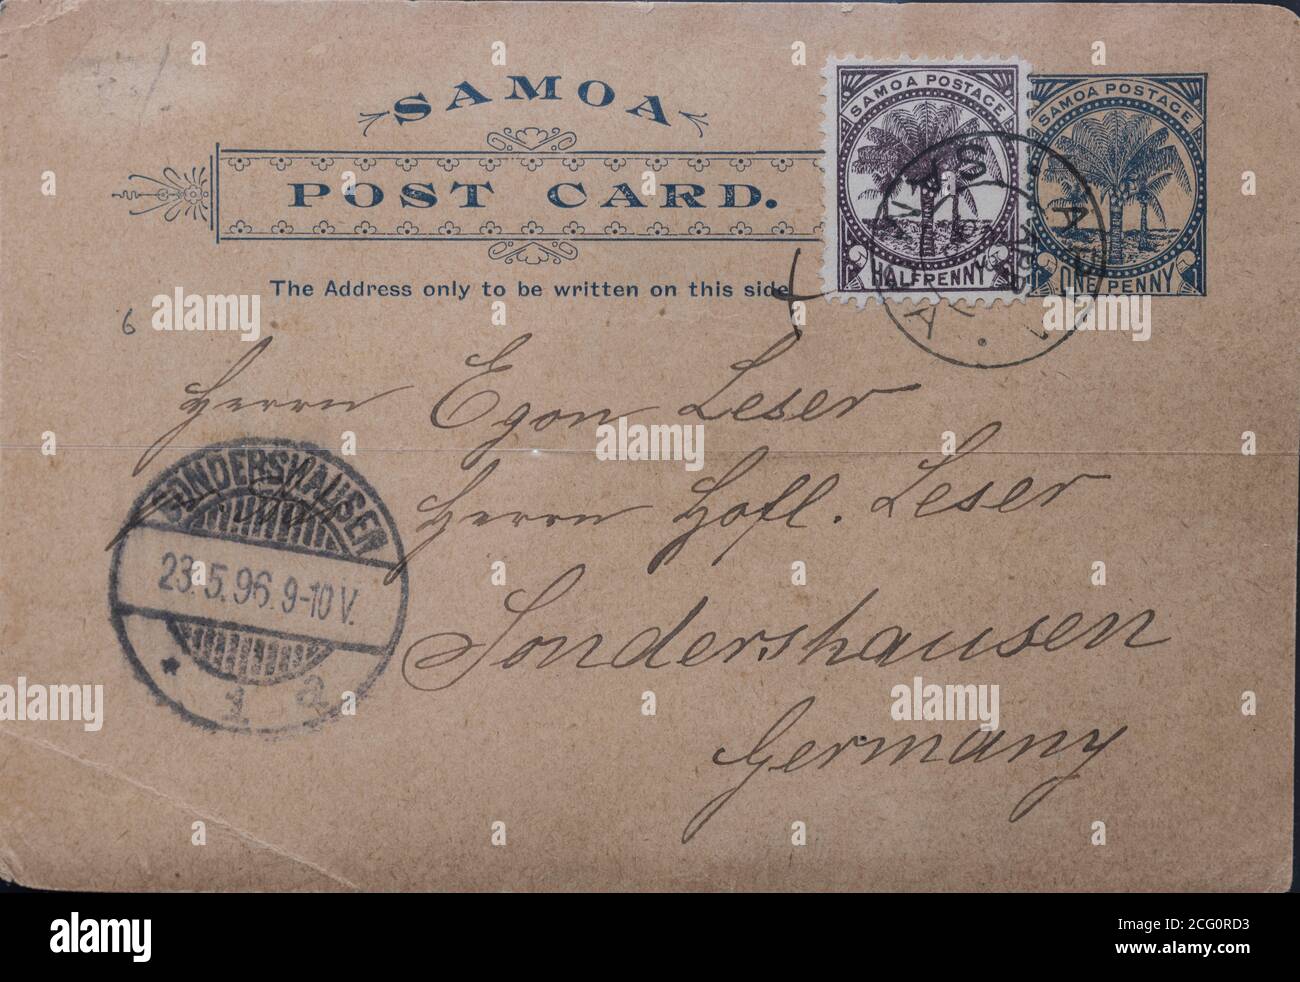 SAMOA
POST CARD.
The Address only to be written on this side
SAMOA POSTAGE
HALFPENNY
SAMOA POSTAGE
ONE PENNY
APIA
SAMOA
6
Herrn Egon Leser
Herrn Hofl. Leser
Sondershausen
Germany
SONDERSHAUSEN
23.5.96.9-10V.
* 1 a
alamy
Image ID: 2CG0RD3
www.alamy.com